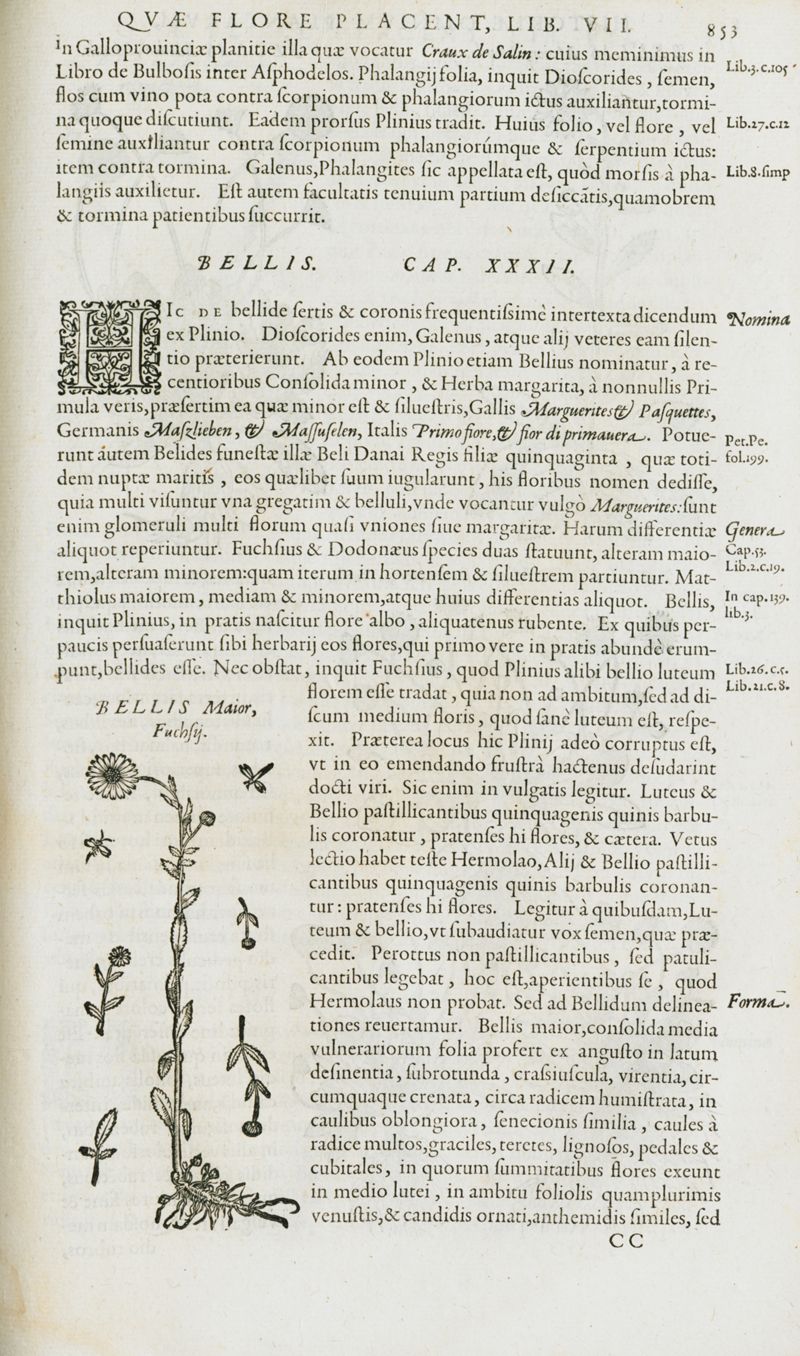 QVÆ FLORE PLACENT, LIB. VII. 853
in Galloprouinciæ planitie illa quæ vocatur Craux de Salin: cuius meminimus in
Libro de Bulbosis inter Asphodelos. Phalangij folia, inquit Dioscorides, semen,
Lib.3.c.105
flos cum vino pota contra scorpionum & phalangiorum ictus auxiliantur,tormi-
na quoque discutiunt. Eadem prorsus Plinius tradit. Huius folio, vel flore, vel
Lib.27.c.12
semine auxiliantur contra scorpionum phalangiorúmque & serpentium ictus:
item contra tormina. Galenus,Phalangites sic appellata est, quòd morsis à pha-
Lib.8.simp
langiis auxilietur. Est autem facultatis tenuium partium desiccátis,quamobrem
& tormina patientibus succurrit.
BELLIS. CAP. XXXII.
HIc DE bellide sertis & coronis frequentissimè intertexta dicendum
Nomina
ex Plinio. Dioscorides enim, Galenus, atque alij veteres eam silen-
tio præterierunt. Ab eodem Plinio etiam Bellius nominatur, à re-
centioribus Consolida minor, & Herba margarita, à nonnullis Pri-
mula veris,præsertim ea quæ minor est & siluestris,Gallis Marguerites & Pasquettes,
Germanis Maszlieben, & Massuselen, Italis Primo fiore,& fior di primauera. Potue-
Pet.Pe.
runt autem Belides funestæ illæ Beli Danai Regis filiæ quinquaginta, quæ toti-
fol.199.
dem nuptæ maritis, eos quælibet suum iugularunt, his floribus nomen dedisse,
quia multi visuntur vna gregatim & belluli,vnde vocantur vulgò Marguerites: sunt
enim glomeruli multi florum quasi vniones siue margaritæ. Harum differentiæ
Genera
aliquot reperiuntur. Fuchsius & Dodonæus species duas statuunt, alteram maio-
Cap.53.
rem,alteram minorem:quam iterum in hortensem & siluestrem partiuntur. Mat-
Lib.2.c.19.
thiolus maiorem, mediam & minorem,atque huius differentias aliquot. Bellis,
In cap.139.
inquit Plinius, in pratis nascitur flore albo, aliquatenus rubente. Ex quibus per-
lib.3.
paucis persuaserunt sibi herbarij eos flores,qui primo vere in pratis abundè erum-
punt,bellides esse. Nec obstat, inquit Fuchsius, quod Plinius alibi bellio luteum
Lib.26.c.5.
florem esse tradat, quia non ad ambitum,sed ad di-
Lib.21.c.8.
BELLIS Maior,
Fuchsij.
scum medium floris, quod sanè luteum est, respe-
xit. Præterea locus hic Plinij adeò corruptus est,
vt in eo emendando frustrà hactenus desudarint
docti viri. Sic enim in vulgatis legitur. Luteus &
Bellio pastillicantibus quinquagenis quinis barbu-
lis coronatur, pratenses hi flores, & cætera. Vetus
lectio habet teste Hermolao, Alij & Bellio pastilli-
cantibus quinquagenis quinis barbulis coronan-
tur: pratenses hi flores. Legitur à quibusdam,Lu-
teum & bellio,vt subaudiatur vox semen,quæ præ-
cedit. Perottus non pastillicantibus, sed patuli-
cantibus legebat, hoc est,aperientibus se, quod
Hermolaus non probat. Sed ad Bellidum delinea-
Forma.
tiones reuertamur. Bellis maior,consolida media
vulnerariorum folia profert ex angusto in latum
desinentia, subrotunda, crassiuscula, virentia, cir-
cumquaque crenata, circa radicem humistrata, in
caulibus oblongiora, senecionis similia, caules à
radice multos,graciles, teretes, lignosos, pedales &
cubitales, in quorum summitatibus flores exeunt
in medio lutei, in ambitu foliolis quamplurimis
venustis,& candidis ornati,anthemidis similes, sed
CC